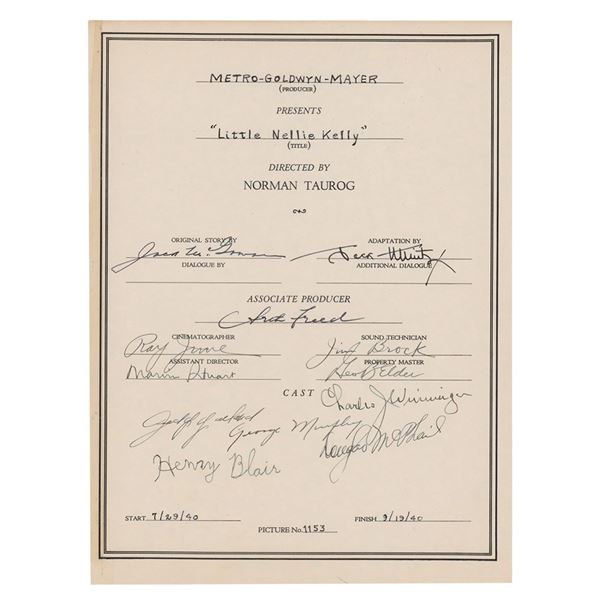 METRO-GOLDWYN-MAYER
(PRODUCER)
PRESENTS
"Little Nellie Kelly"
(TITLE)
DIRECTED BY
NORMAN TAUROG
ORIGINAL STORY BY
ADAPTATION BY
Jack
Jack
DIALOGUE BY
ADDITIONAL DIALOGUE
ASSOCIATE PRODUCER
Freed
CINEMATOGRAPHER
SOUND TECHNICIAN
Ray June
Jim Brock
ASSISTANT DIRECTOR
PROPERTY MASTER
Marvin Stuart
Geo Elder
CAST
Charles J Winninger
George Murphy
Douglas McPhail
Henry Blair
START 7/29/40
FINISH 9/19/40
PICTURE No. 1153